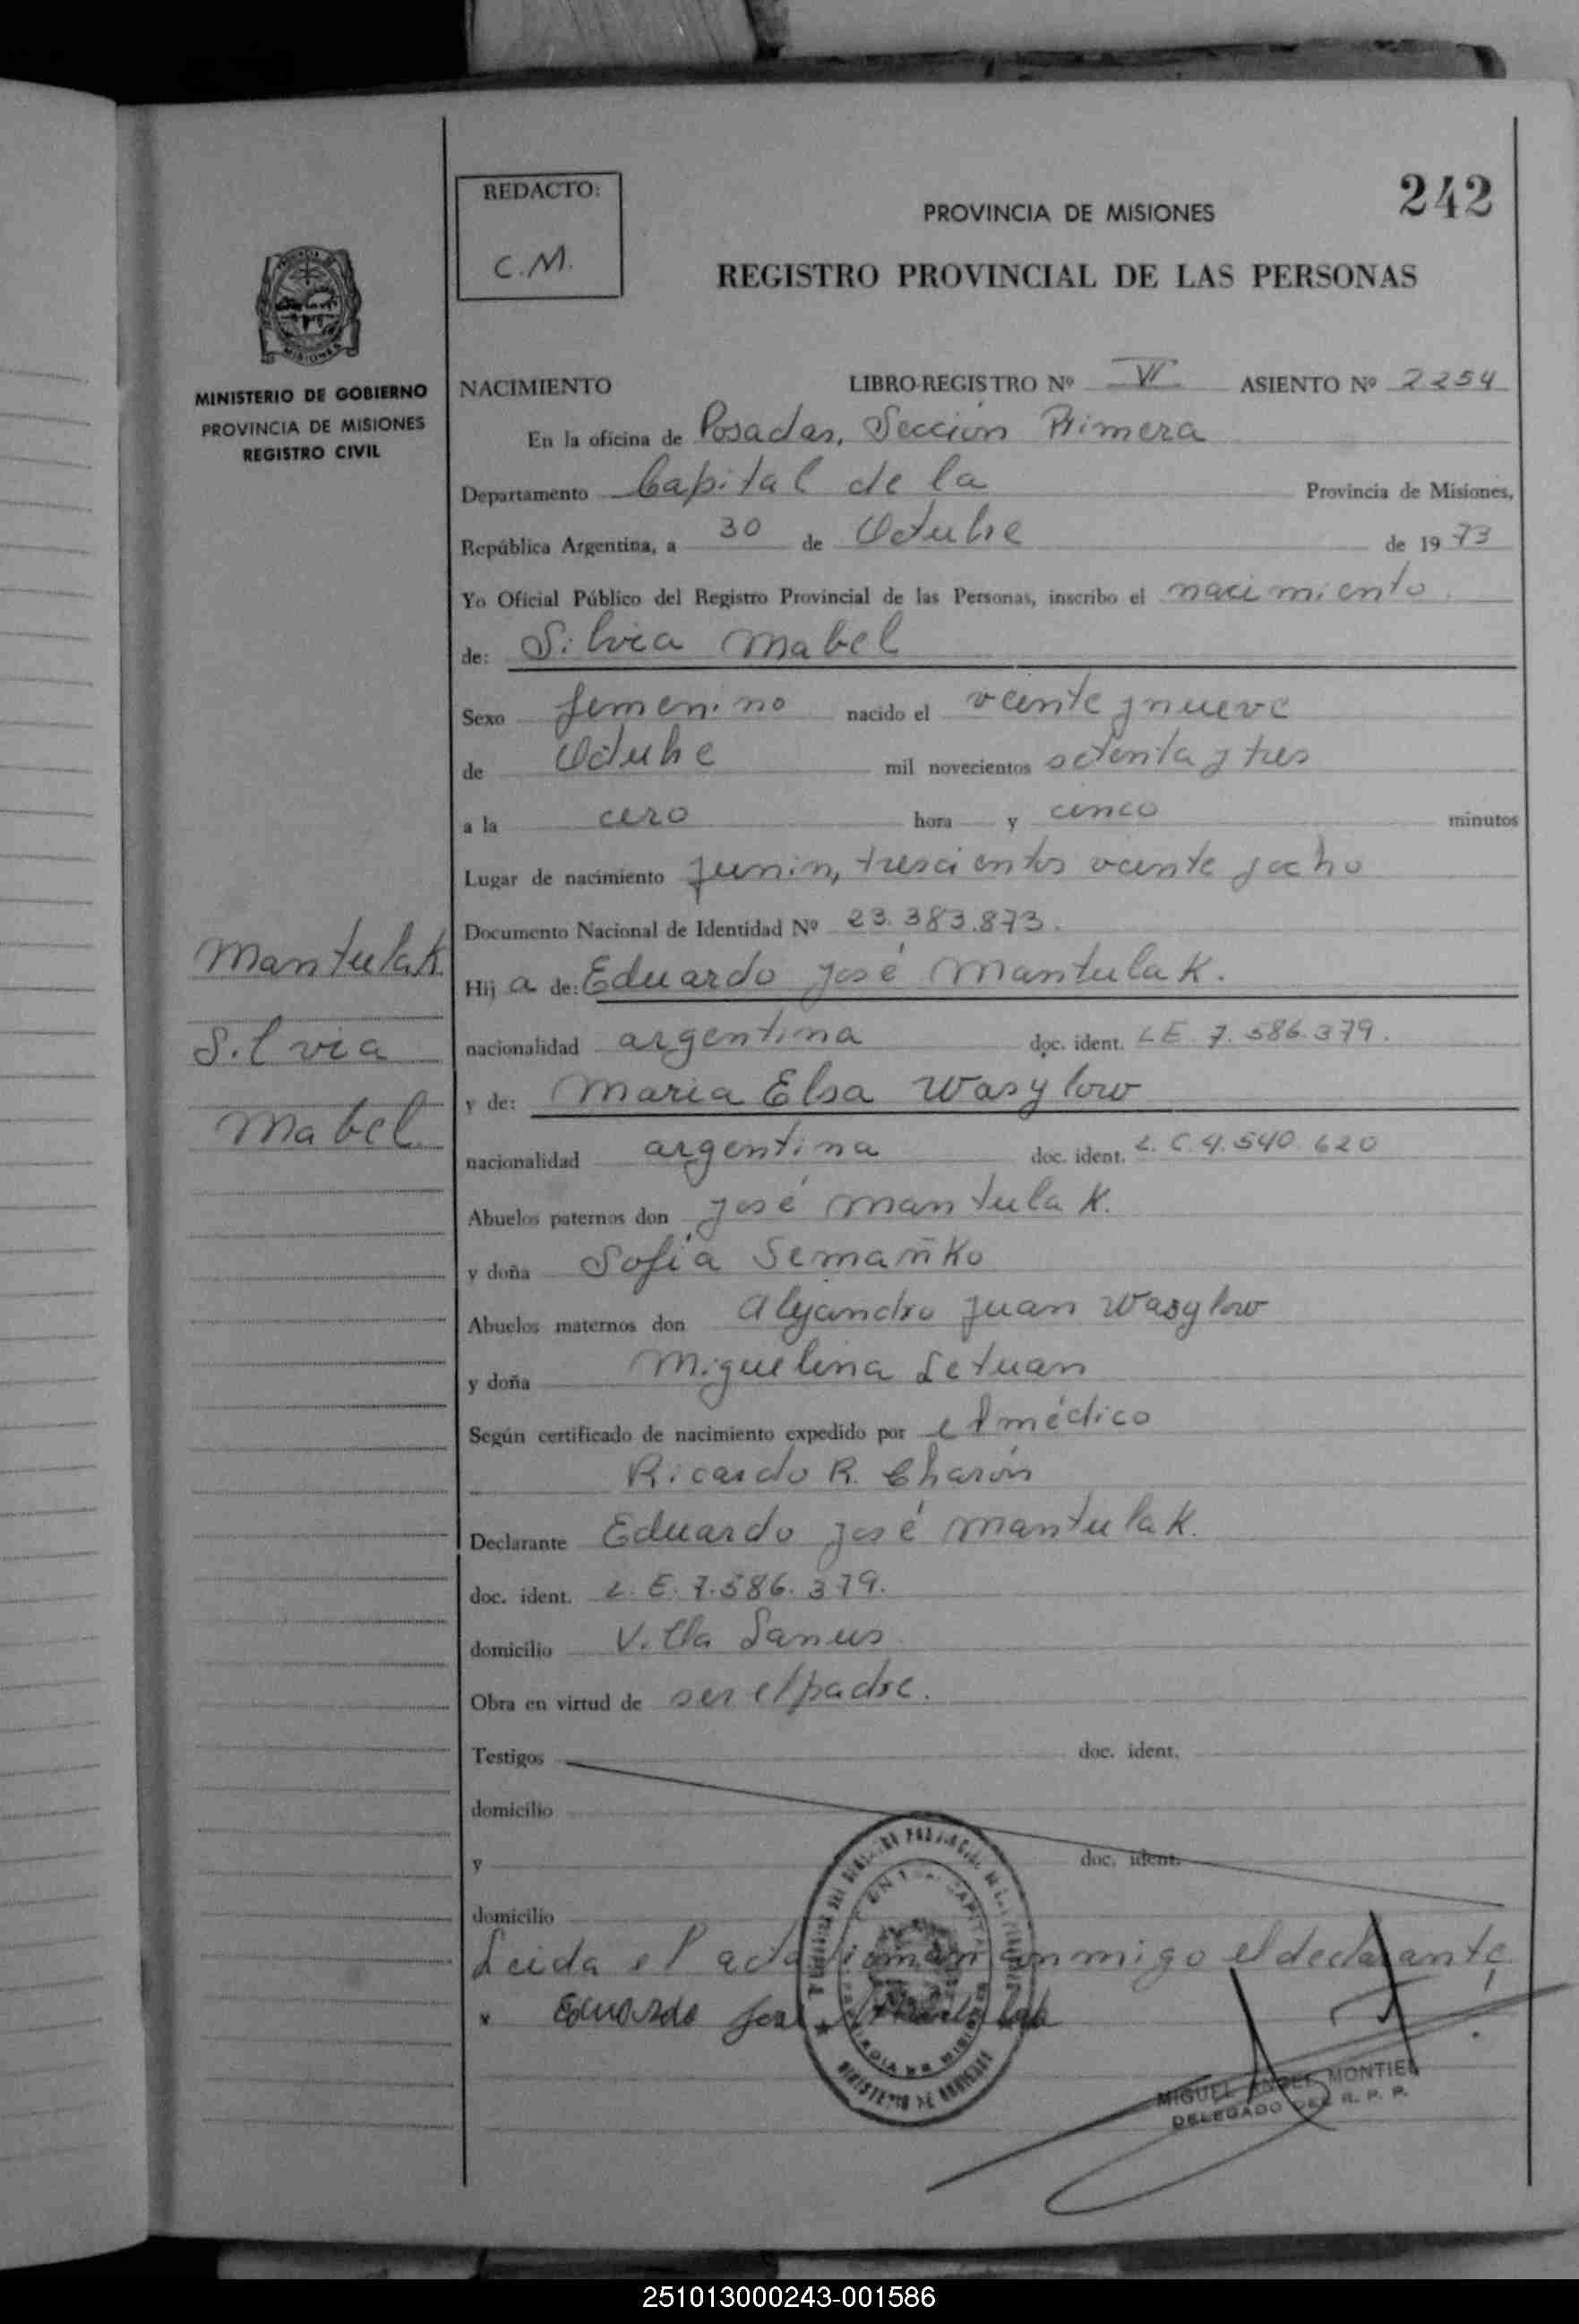 242
REDACTO:
C.M.
PROVINCIA DE MISIONES
REGISTRO PROVINCIAL DE LAS PERSONAS
MINISTERIO DE GOBIERNO
PROVINCIA DE MISIONES
REGISTRO CIVIL
NACIMIENTO LIBRO-REGISTRO Nº VI ASIENTO Nº 2254
En la oficina de Posadas, Sección Primera
Departamento Capital de la Provincia de Misiones,
República Argentina, a 30 de Octubre de 1973
Yo Oficial Público del Registro Provincial de las Personas, inscribo el nacimiento
de: Silvia Mabel
Sexo femenino nacido el veinte y nueve
de Octubre mil novecientos setenta y tres
a la cero hora y cinco minutos
Lugar de nacimiento Junin, trescientos veinte y ocho
Documento Nacional de Identidad Nº 23.383.873.
Mantulak
Silvia
Mabel
Hija de: Eduardo José Mantulak.
nacionalidad argentina doc. ident. LE 7.586.379.
y de: Maria Elsa Wasylow
nacionalidad argentina doc. ident. L.C.4.540.620
Abuelos paternos don José Mantulak.
y doña Sofía Semañko
Abuelos maternos don Alejandro Juan Wasylow
y doña Miguelina Letuan
Según certificado de nacimiento expedido por el médico
Ricardo R. Charón
Declarante Eduardo José Mantulak.
doc. ident. L.E.7.586.379.
domicilio Villa Lanus
Obra en virtud de ser el padre.
Testigos doc. ident.
domicilio
y doc. ident.
domicilio
Leida el acta firman conmigo el declarante
x Eduardo José Mantulak
MIGUEL ANGEL MONTIEL
DELEGADO DEL R. P. P.
251013000243-001586